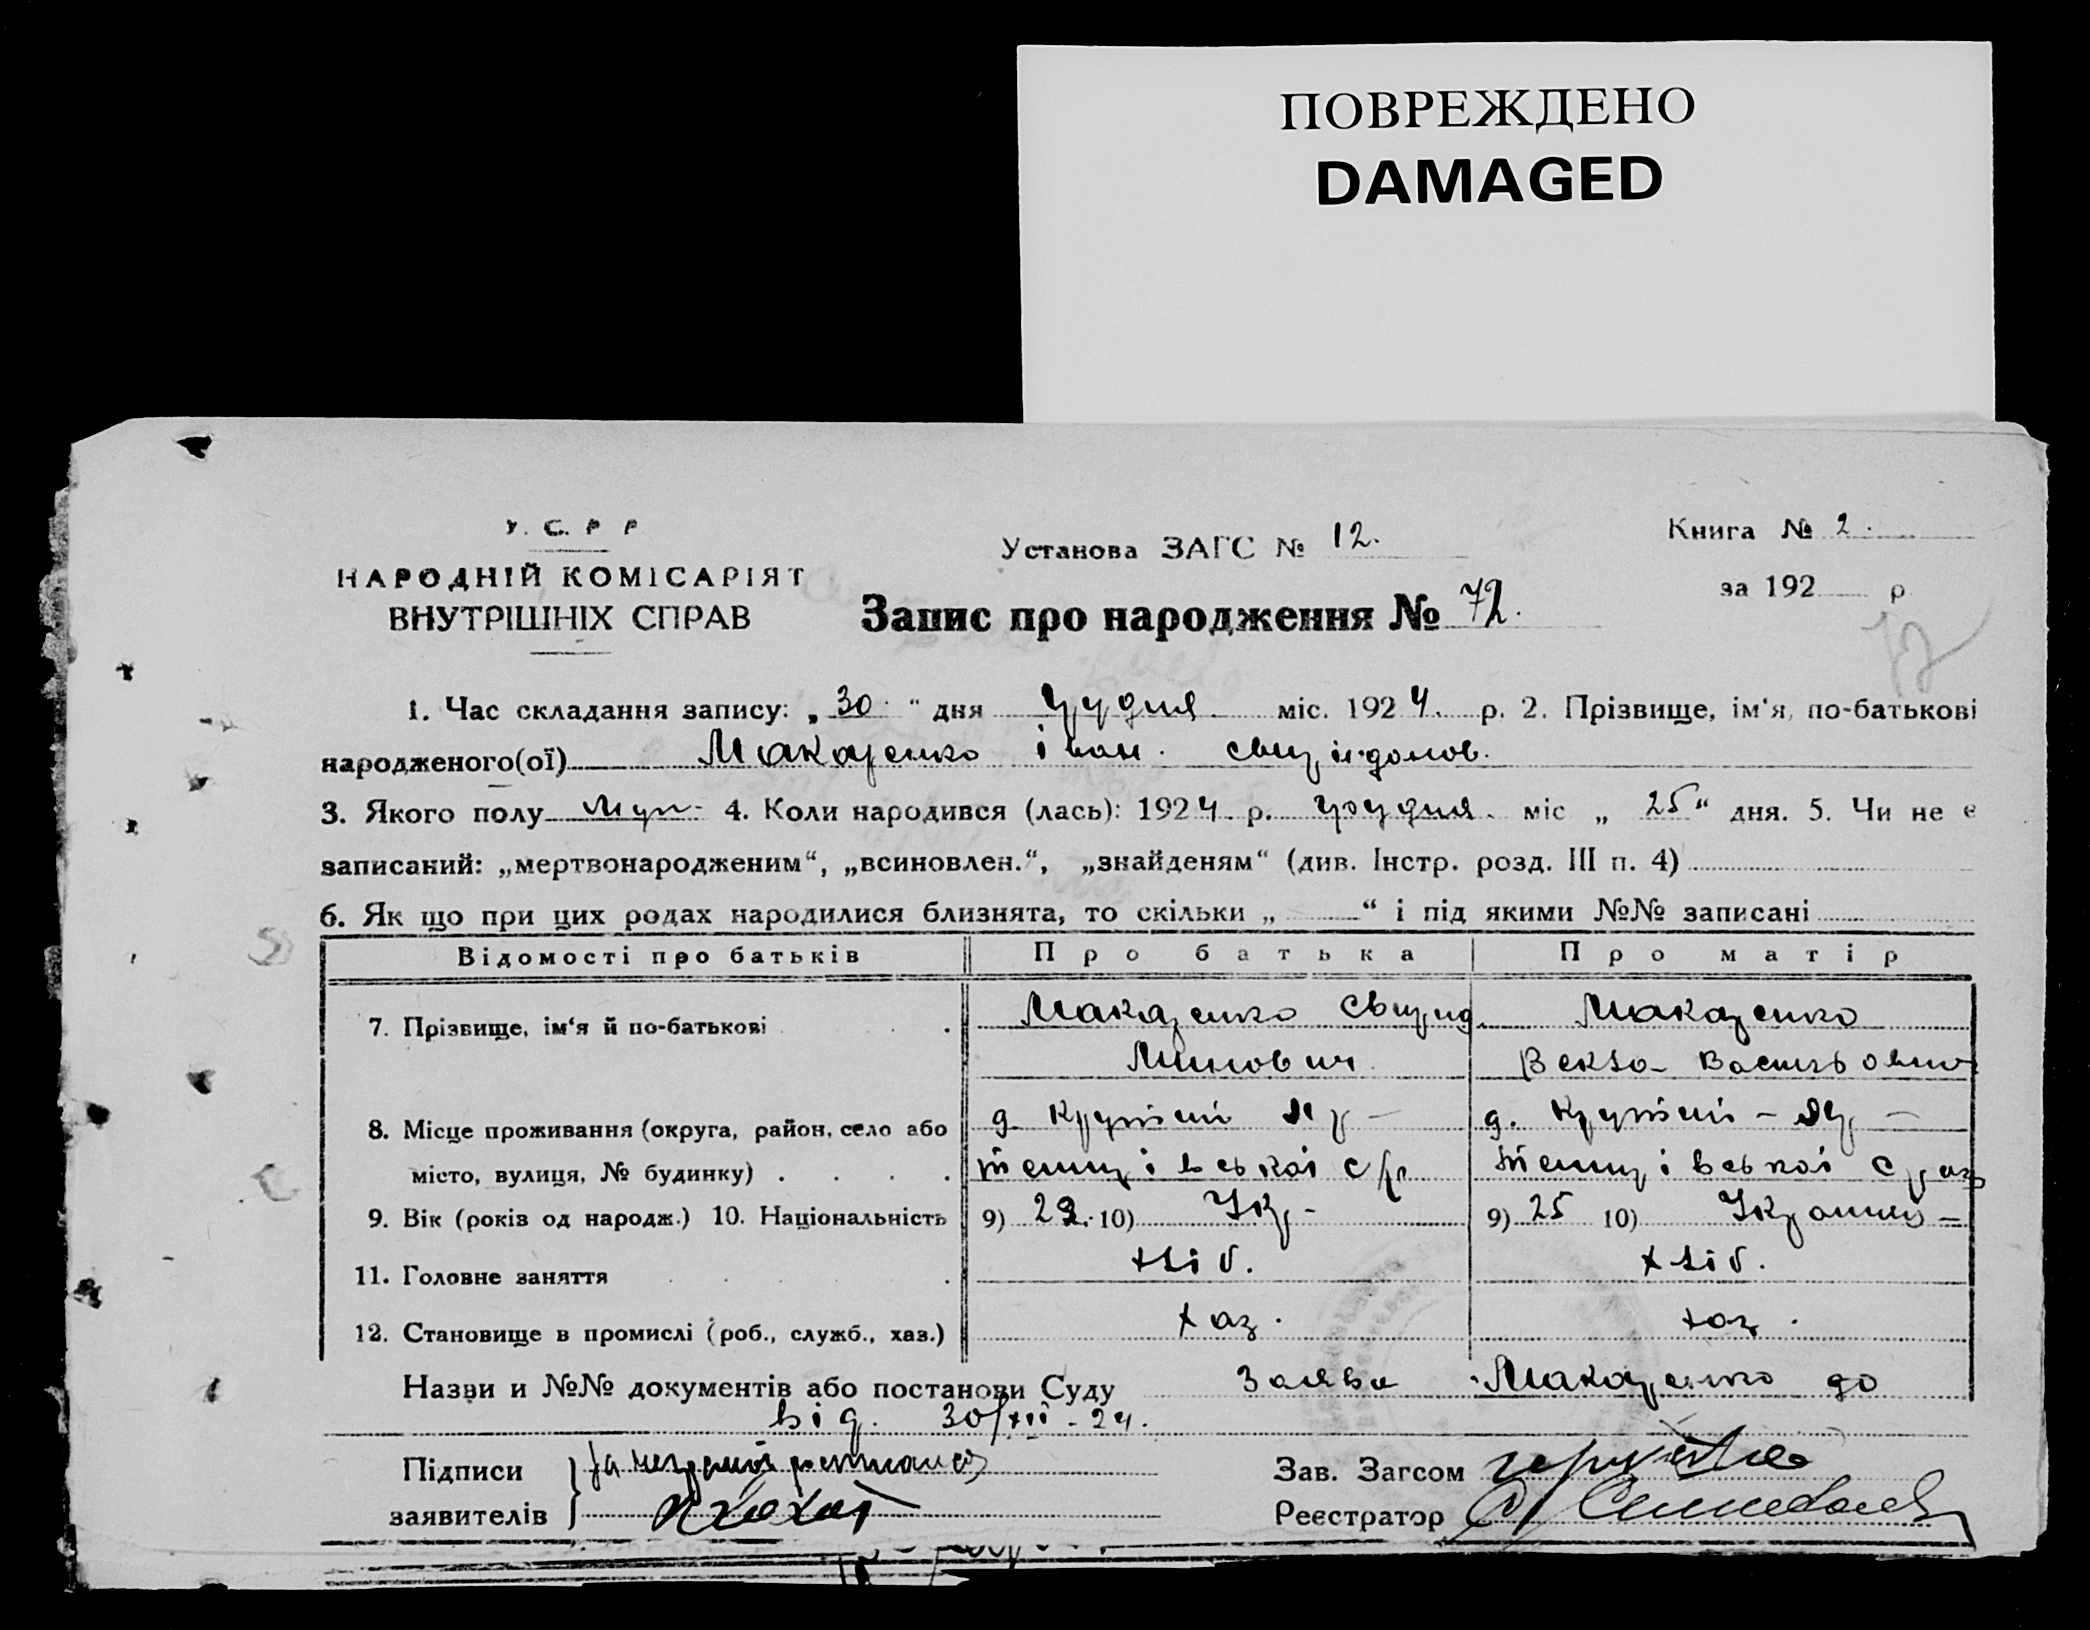 ПОВРЕЖДЕНО
DAMAGED
У. С. Р Р
НАРОДНІЙ КОМІСАРІЯТ
ВНУТРІШНІХ СПРАВ
Установа ЗАГС № 12.
Запис про народження № 72.
Книга № 2.
за 192 р
1. Час складання запису: „30" дня грудня міс. 1924. р. 2. Прізвище, ім'я, по-батькові
народженого(ої) Макаренко Іван Свиридонов.
3. Якого полу муж. 4. Коли народився (лась): 1924. р. грудня. міс „ 25" дня. 5. Чи не є
записаний: „мертвонародженим", „всиновлен.", „знайденям" (див. Інстр. розд. III п. 4)
6. Як що при цих родах народилися близнята, то скільки „ " і під якими №№ записані
Відомості про батьків Про батька Про матір
7. Прізвище, ім'я й по-батькові Макаренко Свирид Макаренко
Минович Векла Васильовна
8. Місце проживання (округа, район, село або д. Крутий Яр – д. Крутий – Яр –
місто, вулиця, № будинку) с/р
9. Вік (років од народж.) 10. Національність 9) 10) Укр – 9) 25 10)
11. Головне заняття хліб. хліб.
12. Становище в промислі (роб., служб., хаз.) хаз. хаз.
Назви и №№ документів або постанови Суду Заява Макаренко до
від. 30/XII – 24.
Підписи За неграмотн
заявителів
Зав. Загсом
Реєстратор